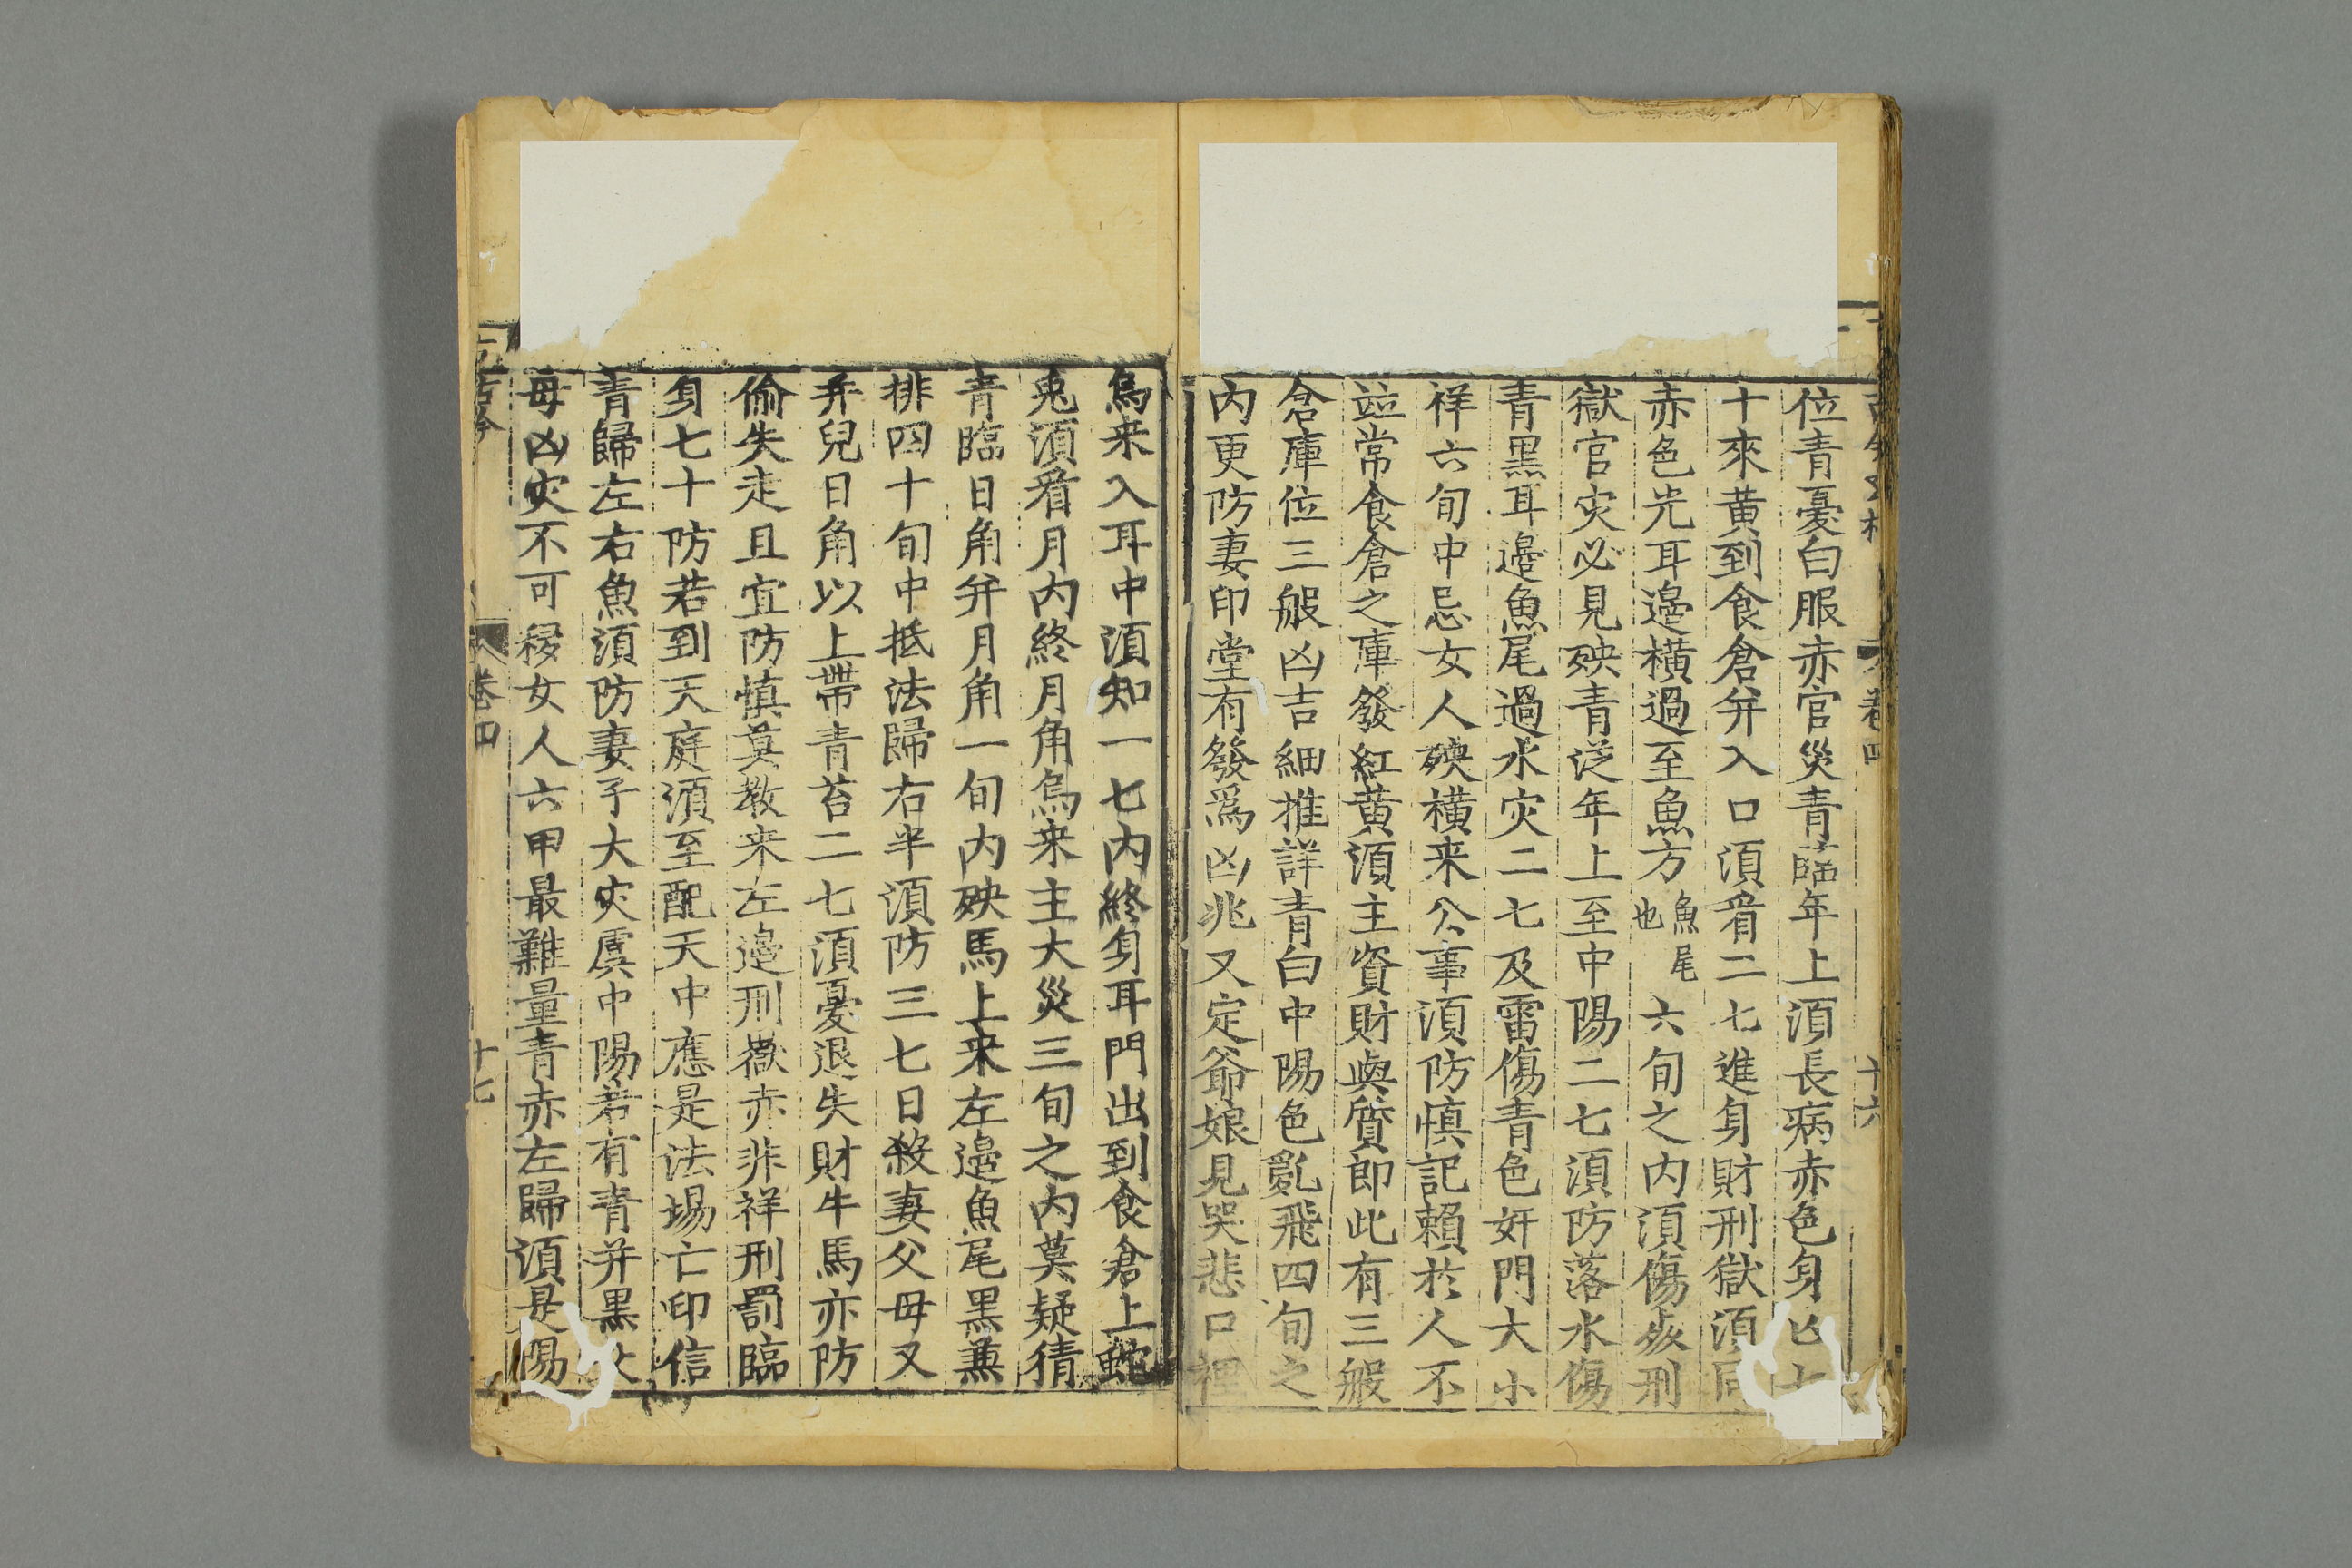 位青憂白服赤官災青臨年上湏長病赤色身
十來黄到食倉并入口湏看二七進身財刑獄湏同
赤色光耳邉橫過至魚方魚尾也六旬之内湏傷刑
獄官灾必見殃青泛年上至中陽二七湏防落水傷
青黒耳邉魚尾過水灾二七及雷傷青色奸門大小
祥六旬中忌女人殃橫来公事湏防慎記賴於人不
並常食倉之庫發紅黄湏主資財與質即此有三般
倉庫位三般凶吉細推詳青白中陽色亂飛四旬之
内更防妻印堂有發爲凶兆又定爺娘見哭悲口裡
卷四
十六
烏来入耳中湏知一七内終身耳門出到食倉上蛇
兎湏看月内終月角烏来主大災三旬之内莫疑猜
青臨日角并月角一旬内殃馬上来左邉魚尾黒蕪
排四十旬中抵法歸右半湏防三七日殺妻父母又
并兒日角以上帶青苔二七湏憂退失財牛馬亦防
偷失走且宜防慎莫教来左邉刑嶽赤非祥刑罰臨
身七十防若到天庭湏至配天中應是法場亡印信
青歸左右魚湏防妻子大灾虞中陽若有青并黒
母凶灾不可女人六甲最難量青赤左歸湏是陽
卷四
十七